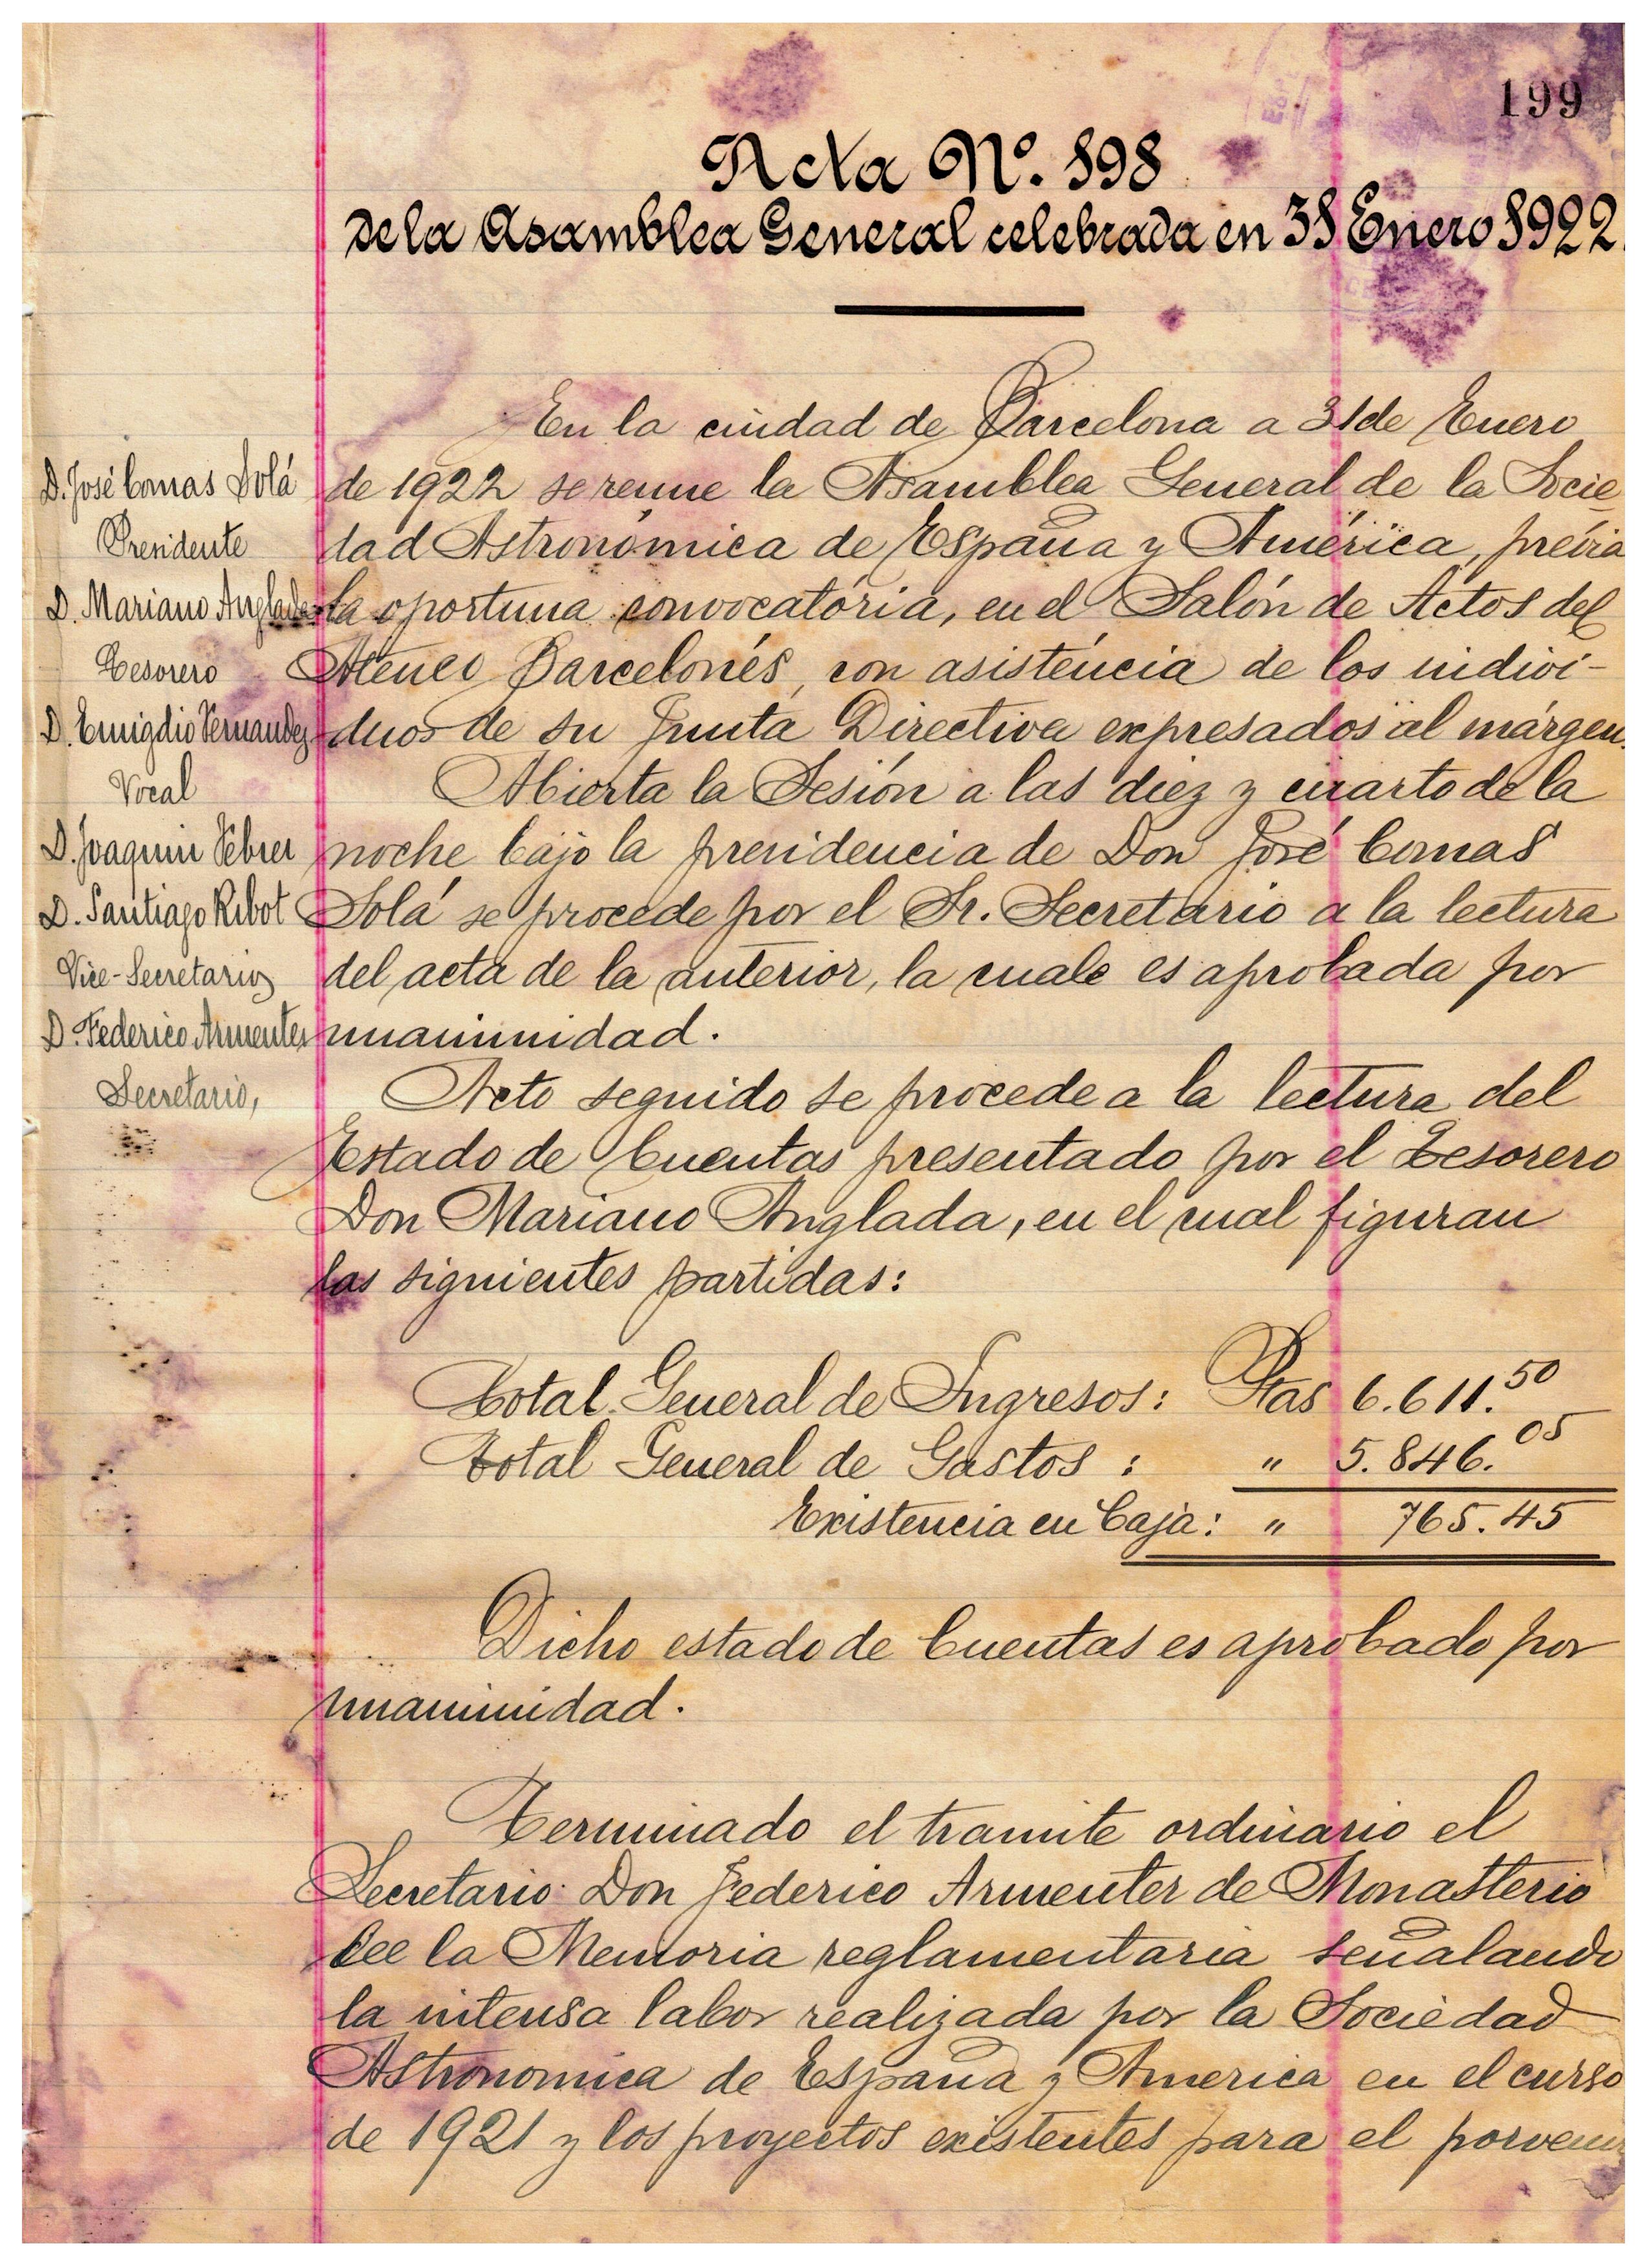 199
Acta Nº. 198
de la Asamblea General celebrada en 31 Enero 1922.
D. José Comas Solá
Presidente
D. Mariano Anglada
Tesorero
D. Emigdio Fernandez
Vocal
D. Joaquin Febrer
D. Santiago Ribot
Vice-Secretarios
D. Federico Armenter
Secretario,
En la ciudad de Barcelona a 31 de Enero
de 1922 se reune la Asamblea General de la Socie-
dad Astronómica de España y América, prévia
la oportuna convocatória, en el Salón de Actos del
Ateneo Barcelonés, con asisténcia de los indiví-
duos de su Junta Directiva expresados al márgen.
Abierta la Sesión a las diez y cuarto de la
noche bajo la presidencia de Don José Comas
Solá se procede por el Sr. Secretario a la lectura
del acta de la anterior, la cuale es aprobada por
unanimidad.
Acto seguido se procede a la lectura del
Estado de Cuentas presentado por el Tesorero
Don Mariano Anglada, en el cual figuran
las siguientes partidas:
Total General de Ingresos: Ptas 6.611.50
Total General de Gastos : " 5.846.05
Existencia en Caja: " 765.45
Dicho estado de Cuentas es aprobado por
unanimidad.
Terminado el tramite ordinario el
Secretario Don Federico Armenter de Monasterio
lee la Memoria reglamentaria señalando
la intensa labor realizada por la Sociedad
Astronomica de España y America en el curso
de 1921 y los proyectos existentes para el porvenir